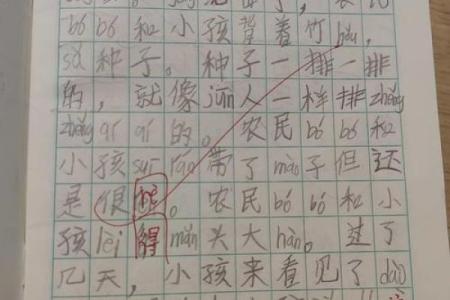 bó bó 和 小 孩 背 着 竹 lóu,
sǎ 种 子。 种 子 一 排 一 排
的, 就 像 jūn 人 一 样 排 zhěng
zhěng qí qí 的。 农 民 bó bó 和
小 孩 suī rán 带 了 mào 子 但 还
是 很
农 民 bó bó 和 小
孩 lèi 得 mǎn 头 大 hàn。 过 了
几 天, 小 孩 来 看 见 了 dào